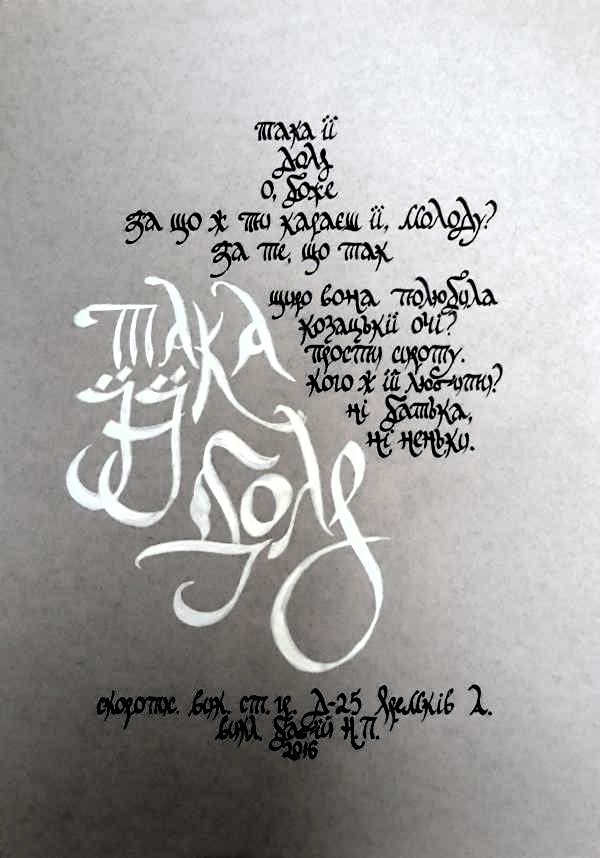 така її
доля
о, боже
За що ж ти караєш її, молоду?
За те, що так
щиро вона полюбила
козацькії очі?
прости сироту.
кого ж їй любити?
ні батька,
ні неньки.
така
її
доля
скоропис. вик. ст. гр. Д-25 Яремків Д.
викл. Бабій Н.П.
2016